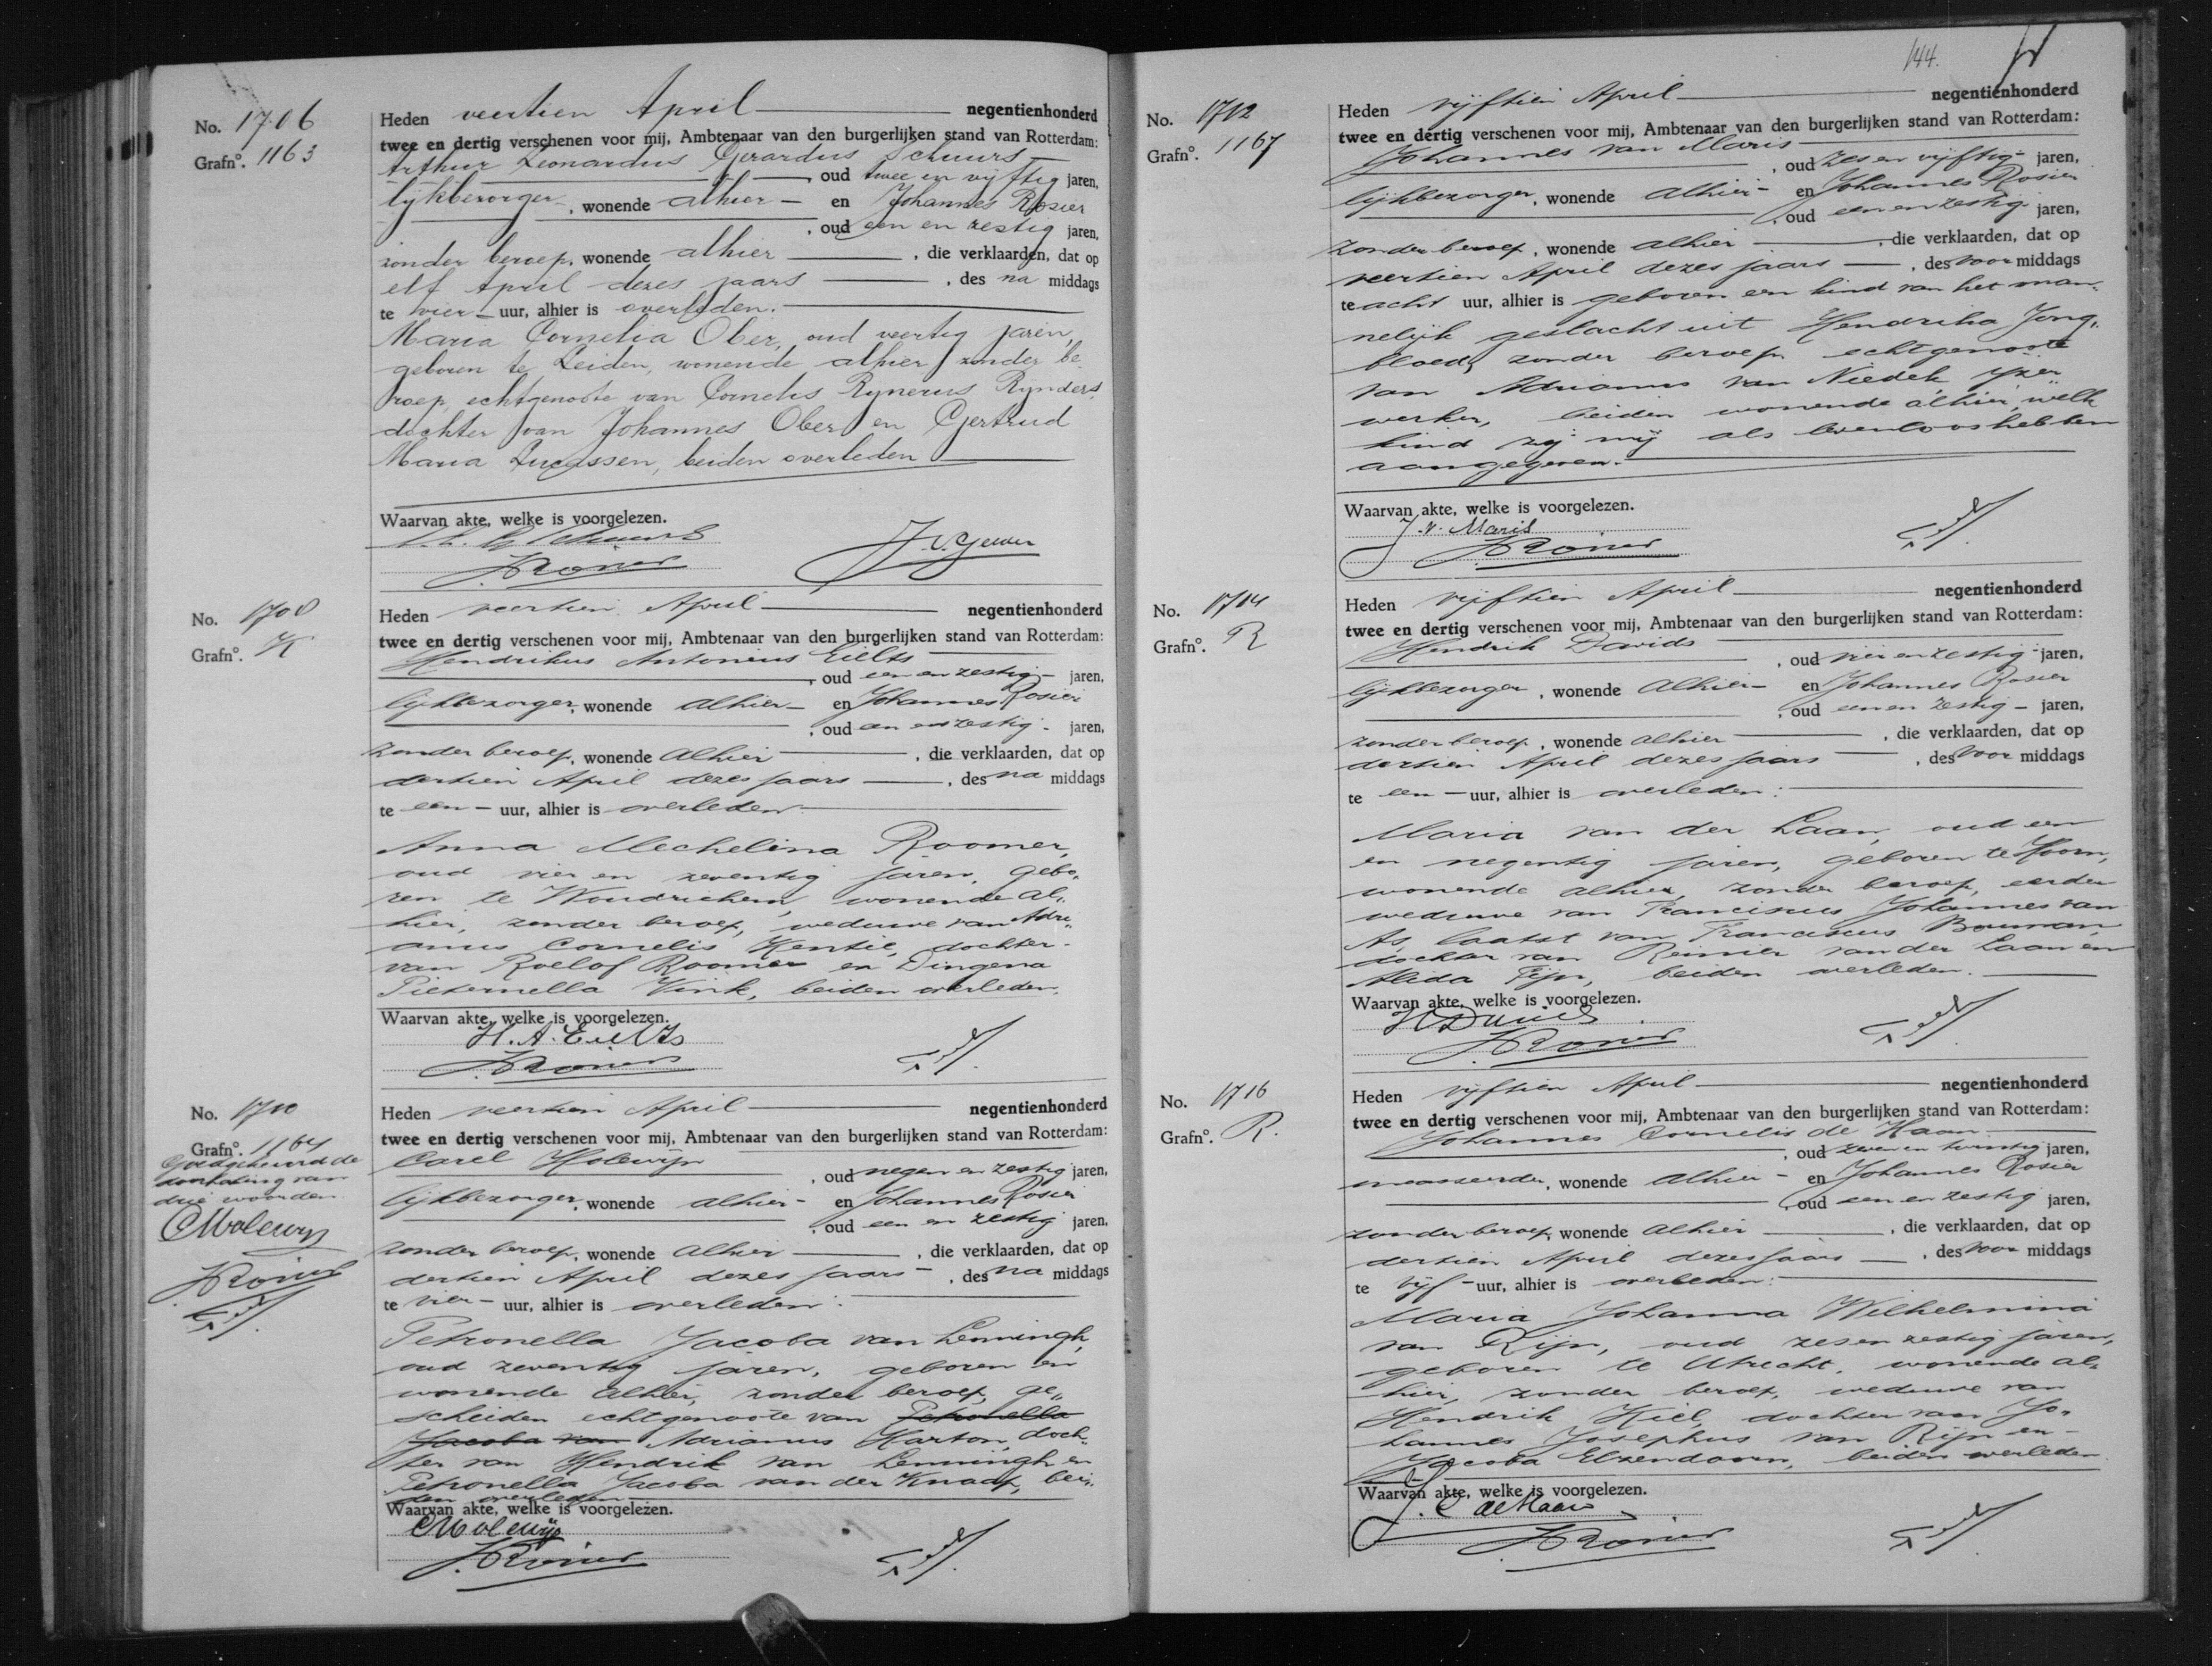 No. 1706
Grafno. 1163
Heden veertien April negentienhonderd
twee en dertig verschenen voor mij, Ambtenaar van den burgerlijken stand van Rotterdam:
Arthur Leonardus Gerardus Schuurs
, oud twee en vijftig jaren,
lijkbezorger, wonende alhier en Johannes Rosier
, oud een en zestig jaren,
zonder beroep, wonende alhier , die verklaarden, dat op
elf April dezes jaars , des na middags
te vier uur, alhier is overleden:
Maria Cornelia Ober, oud veertig jaren,
geboren te Leiden, wonende alhier, zonder be-
roep, echtgenoote van Cornelis Rijnerus Rijnders,
dochter van Johannes Ober en Gertrud
Maria Lucassen, beiden overleden
Waarvan akte, welke is voorgelezen.
No. 1708
Grafno. K
Heden veertien April negentienhonderd
twee en dertig verschenen voor mij, Ambtenaar van den burgerlijken stand van Rotterdam:
Hendrikus Antonius Eielts
, oud een en zestig jaren,
lijkbezorger, wonende alhier en Johannes Rosier
, oud een en zestig jaren,
zonder beroep, wonende alhier , die verklaarden, dat op
dertien April dezes jaars , des na middags
te een uur, alhier is overleden
Anna Mechelina Roomer,
oud vier en zeventig jaren, gebo„
ren te Woudrichem, wonende al„
hier, zonder beroep, weduwe van Adri„
anus Cornelis Kentie, dochter
van Roelof Roomer en Dingena
Pieternella Vink, beiden overleden.
Waarvan akte, welke is voorgelezen.
H. A. Eielts
No. 1710
Grafno. 1164
Goedgekeurd de
doorhaling van
drie woorden
CHolewijn
Heden veertien April negentienhonderd
twee en dertig verschenen voor mij, Ambtenaar van den burgerlijken stand van Rotterdam:
Carel Holewijn
, oud negen en zestig jaren,
lijkbezorger, wonende alhier en Johannes Rosier
, oud een en zestig jaren,
zonder beroep, wonende alhier , die verklaarden, dat op
dertien April dezes jaars , des na middags
te vier uur, alhier is overleden:
Petronella Jacoba van Lenningh,
oud zeventig jaren, geboren en
wonende alhier, zonder beroep, ge„
scheiden echtgenoote van Petronella
Jacoba van Adrianus Karton, doch„
ter van Hendrik van Lenningh en
Petronella Jacoba van der Knaap, bei„
den overleden
Waarvan akte, welke is voorgelezen.
CHolewijn
144.
No. 1712
Grafno. 1167
Heden vijftien April negentienhonderd
twee en dertig verschenen voor mij, Ambtenaar van den burgerlijken stand van Rotterdam:
Johannes van Maris
, oud zes en vijftig jaren,
lijkbezorger, wonende alhier en Johannes Rosier
, oud een en zestig jaren,
zonder beroep, wonende alhier , die verklaarden, dat op
veertien April dezes jaars , des voor middags
te acht uur, alhier is geboren een kind van het man„
nelijk geslacht uit Hendrika Jong„
bloed, zonder beroep, echtgenoote
van Adrianus van Niedek, ijzer„
werker, beiden wonende alhier, welk
kind zij mij als levenloos hebben
aangegeven.
Waarvan akte, welke is voorgelezen.
J. v. Maris
No. 1714
Grafno. R
Heden vijftien April negentienhonderd
twee en dertig verschenen voor mij, Ambtenaar van den burgerlijken stand van Rotterdam:
Hendrik Davids
, oud vier en zestig jaren,
lijkbezorger, wonende alhier en Johannes Rosier
, oud een en zestig jaren,
zonder beroep, wonende alhier , die verklaarden, dat op
dertien April dezes jaars , des voor middags
te een uur, alhier is overleden:
Maria van der Laan, oud een
en negentig jaren, geboren te Hoorn,
wonende alhier, zonder beroep, eerder
weduwe van Franciscus Johannes van
As, laatst van Franciscus Bouman,
dochter van Reinier van der Laan en
Alida Fijn, beiden overleden.
Waarvan akte, welke is voorgelezen.
HDavids
No. 1716
Grafno. R.
Heden vijftien April negentienhonderd
twee en dertig verschenen voor mij, Ambtenaar van den burgerlijken stand van Rotterdam:
Johannes Cornelis de Haan
, oud zeven en twintig jaren,
masseerder, wonende alhier en Johannes Rosier
, oud een en zestig jaren,
zonder beroep, wonende alhier , die verklaarden, dat op
dertien April dezes jaars , des voor middags
te vijf uur, alhier is overleden:
Maria Johanna Wilhelmina
van Rijn, oud zes en zestig jaren,
geboren te Utrecht, wonende al„
hier, zonder beroep, weduwe van
Hendrik Kiel, dochter van Jo„
hannes Josephus van Rijn en
Jacoba Elzendoorn, beiden overleden
Waarvan akte, welke is voorgelezen.
J. C de Haan